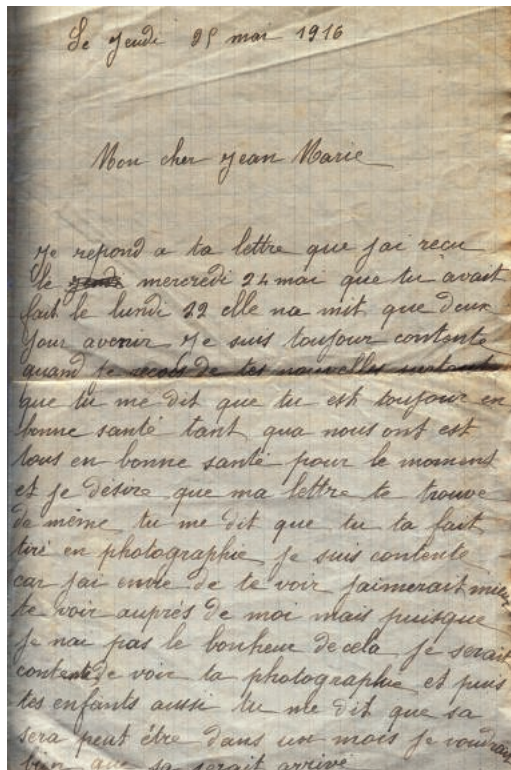 Le Jeudi 25 mai 1916
Mon cher Jean Marie
Je repond a ta lettre que jai recu
le jeudi mercredi 24 mai que tu avait
fait le lundi 22 elle na mit que deux
jour avenir Je suis toujour contente
quand je recois de tes nouvelles surtout
que tu me dit que tu est toujour en
bonne santé tant qua nous ont est
tous en bonne santé pour le moment
et je désire que ma lettre te trouve
de même tu me dit que tu ta fait
tiré en photographie je suis contente
car jai envie de te voir jaimerait mieu
te voir auprés de moi mais puisque
je nai pas le bonheur de cela je serait
contente de voir ta photographie et puis
tes enfants aussi tu me dit que sa
sera peut être dans un mois je voudrait
bien que sa serait arrivé